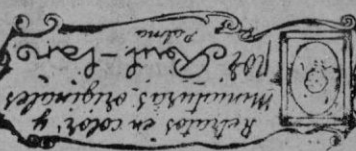 Retratos en color y
miniaturas originales
POR
Palma